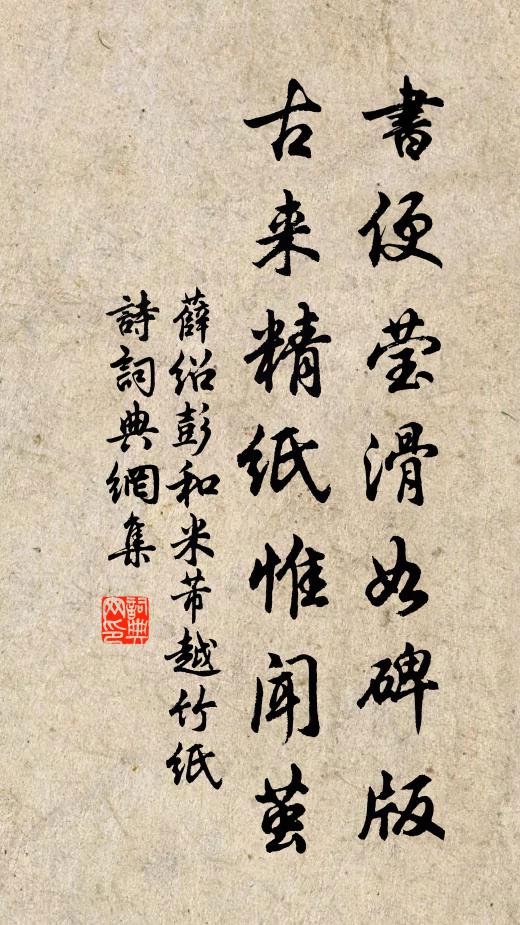 書便莹滑如碑版
古来精紙惟聞茧
薛绍彭和米芾越竹紙
詩詞典網集
詞典网印